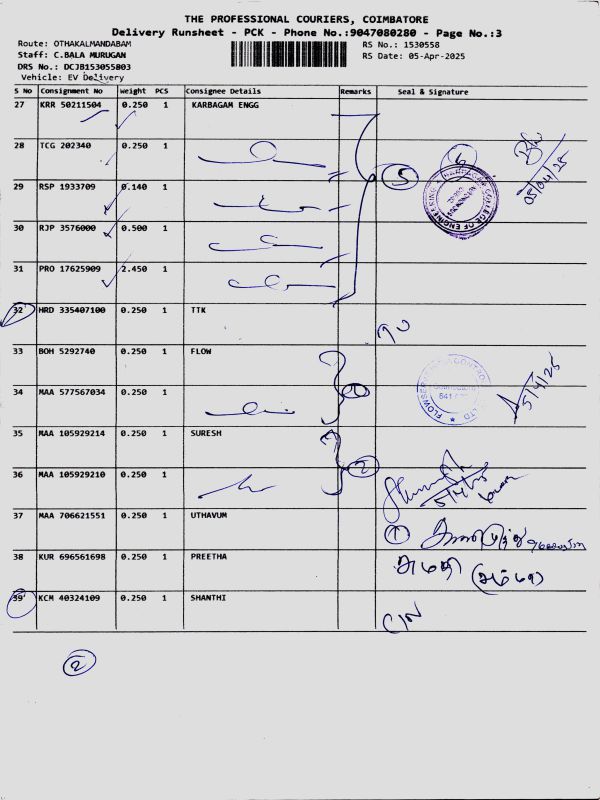 THE PROFESSIONAL COURIERS, COIMBATORE
Delivery Runsheet - PCK - Phone No.:9047080280 - Page No.:3
Route: OTHAKALMANDABAM
RS No.: 1530558
Staff: C.BALA MURUGAN
RS Date: 05-Apr-2025
DRS No.: DCJB153055803
Vehicle: EV Delivery
S No Consignment No Weight PCS Consignee Details Remarks Seal & Signature
27 KRR 50211504 0.250 1 KARBAGAM ENGG
28 TCG 202340 0.250 1
05/04/25
29 RSP 1933709 0.140 1
5
30 RJP 3576000 0.500 1
31 PRO 17625909 2.450 1
32 HRD 335407100 0.250 1 TTK
33 BOH 5292740 0.250 1 FLOW
34 MAA 577567034 0.250 1
5/4/25
35 MAA 105929214 0.250 1 SURESH
2
36 MAA 105929210 0.250 1
5/4/25
37 MAA 706621551 0.250 1 UTHAVUM
38 KUR 696561698 0.250 1 PREETHA
39 KCM 40324109 0.250 1 SHANTHI
2